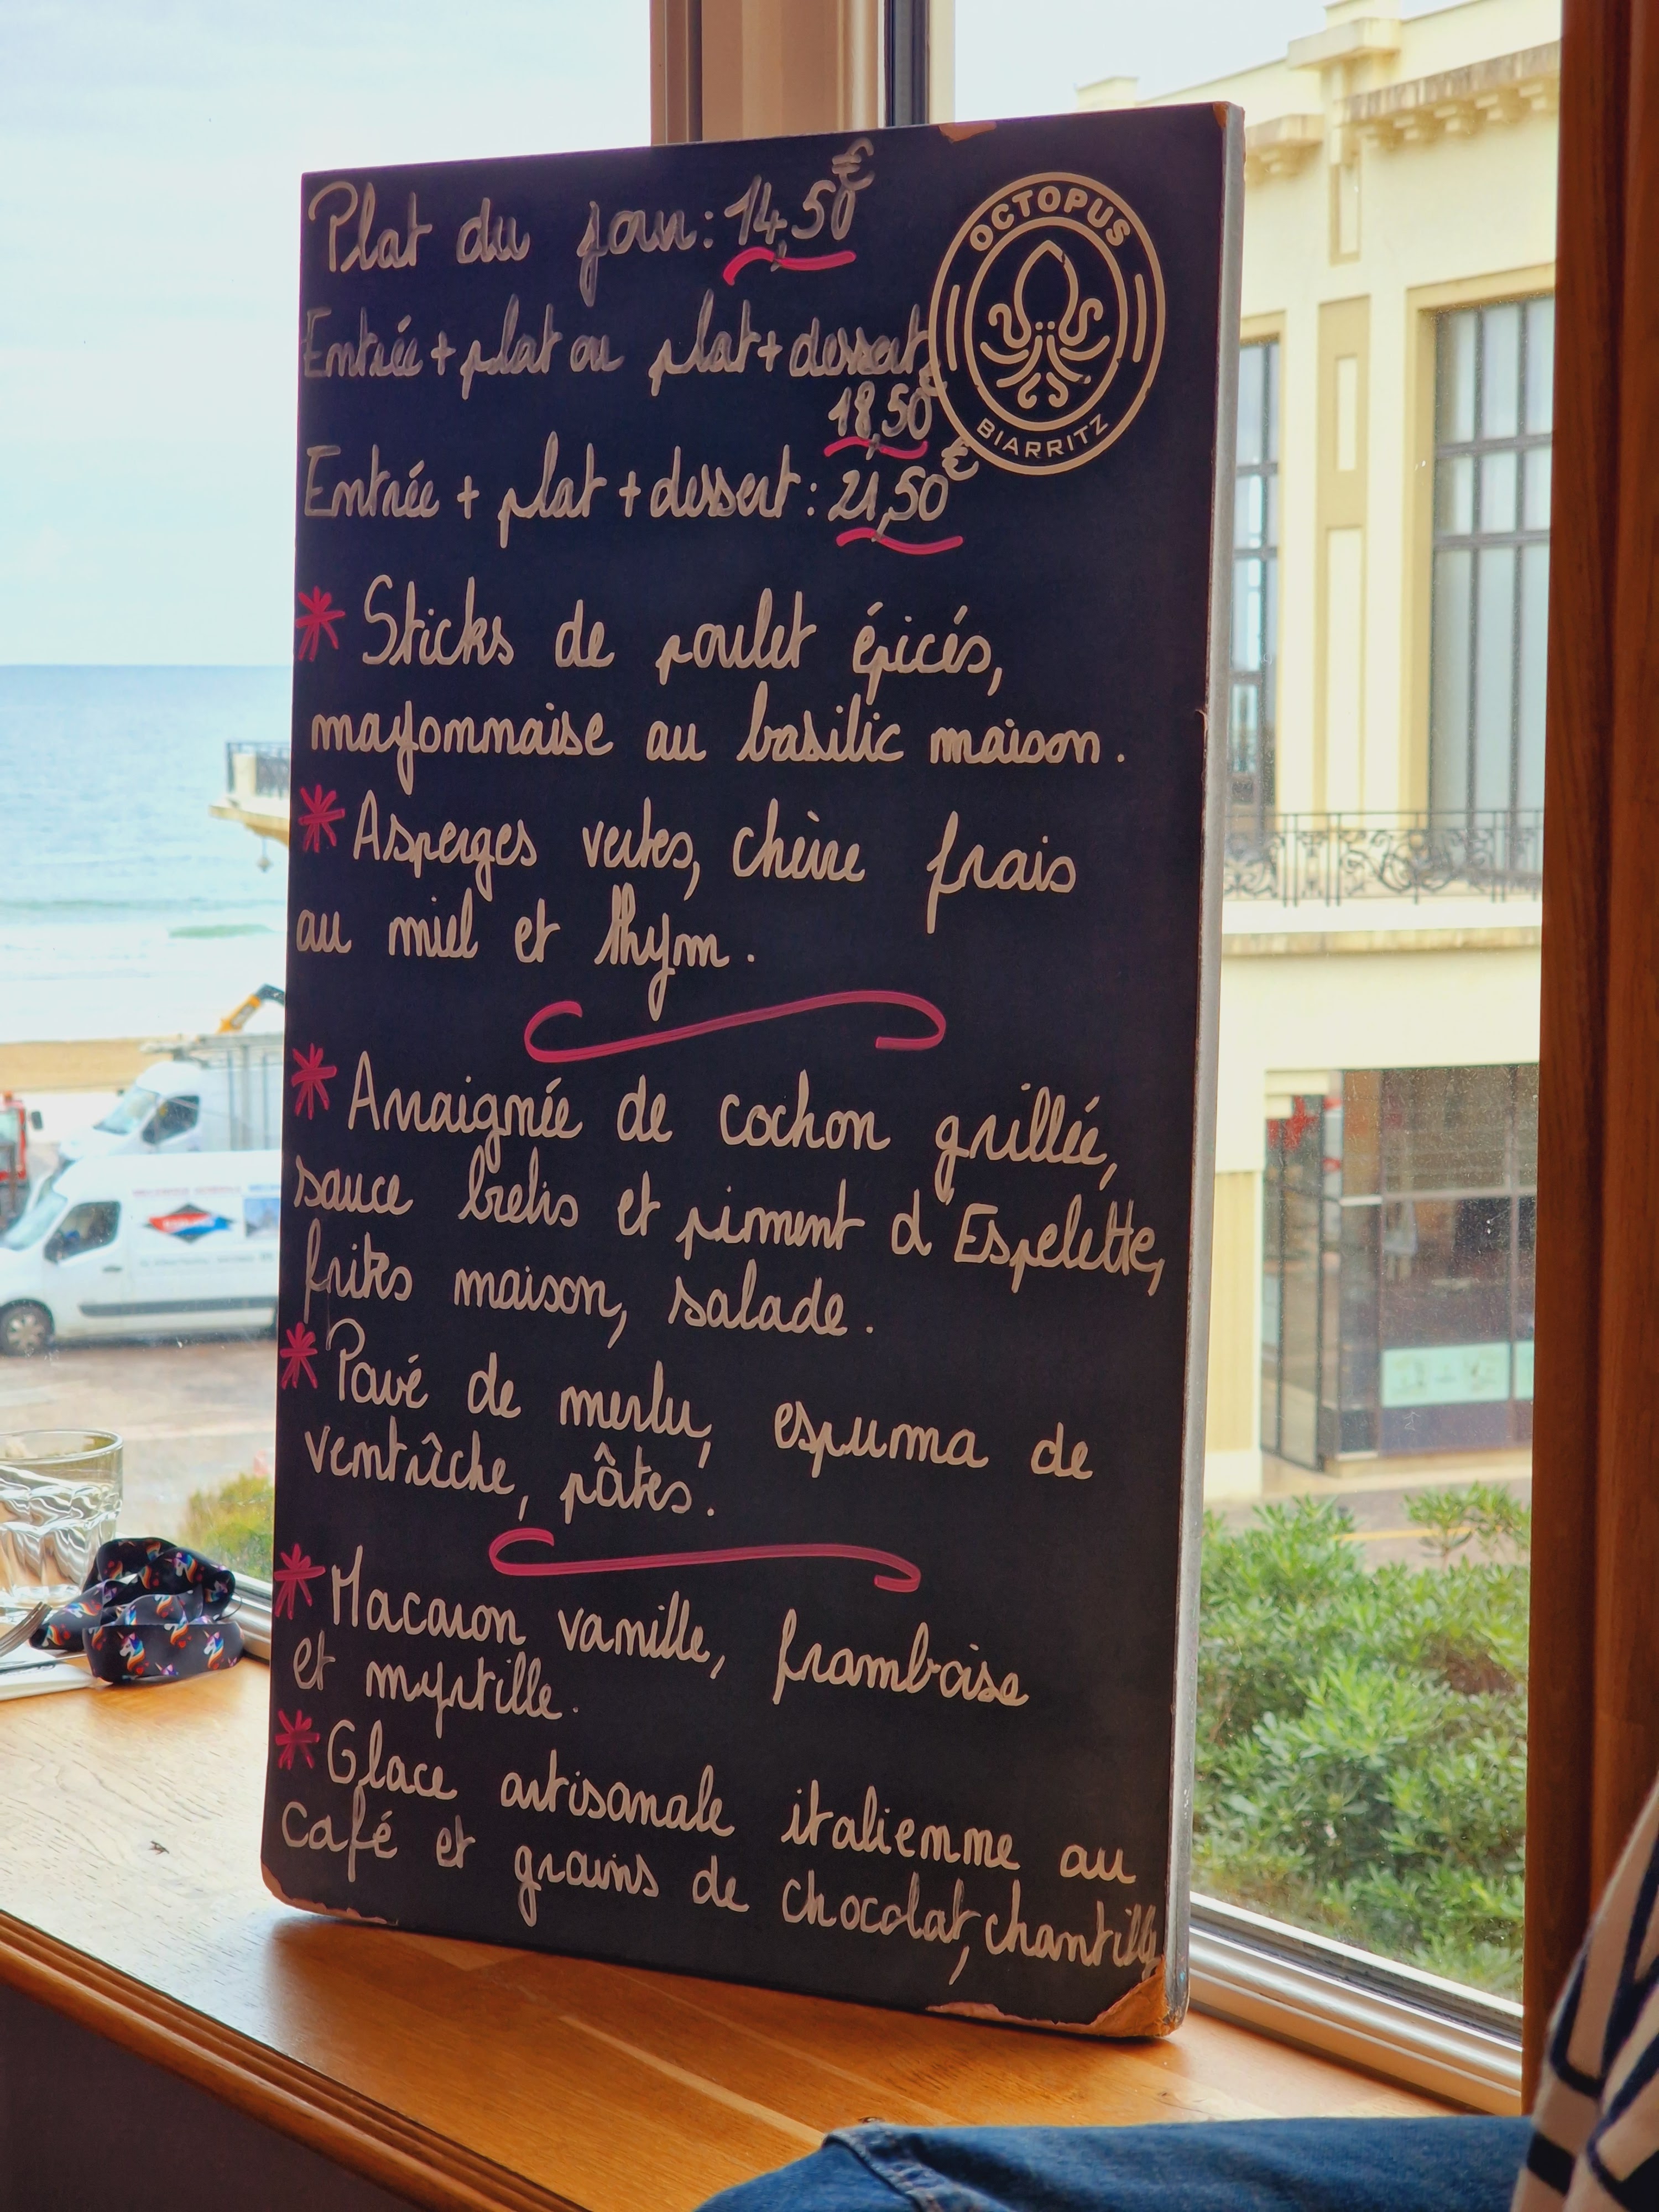 Plat du jour: 14,50€
OCTOPUS
BIARRITZ
Entrée + plat ou plat + dessert
18,50€
Entrée + plat + dessert: 21,50€
* Sticks de poulet épicés,
mayonnaise au basilic maison.
* Asperges vertes, chèvre frais
au miel et thym.
* Araignée de cochon grillée,
sauce brebis et piment d'Espelette,
frites maison, salade.
* Pavé de merlu, espuma de
ventrêche, pâtes.
* Macaron vanille, framboise
et myrtille.
* Glace artisanale italienne au
café et grains de chocolat, chantilly